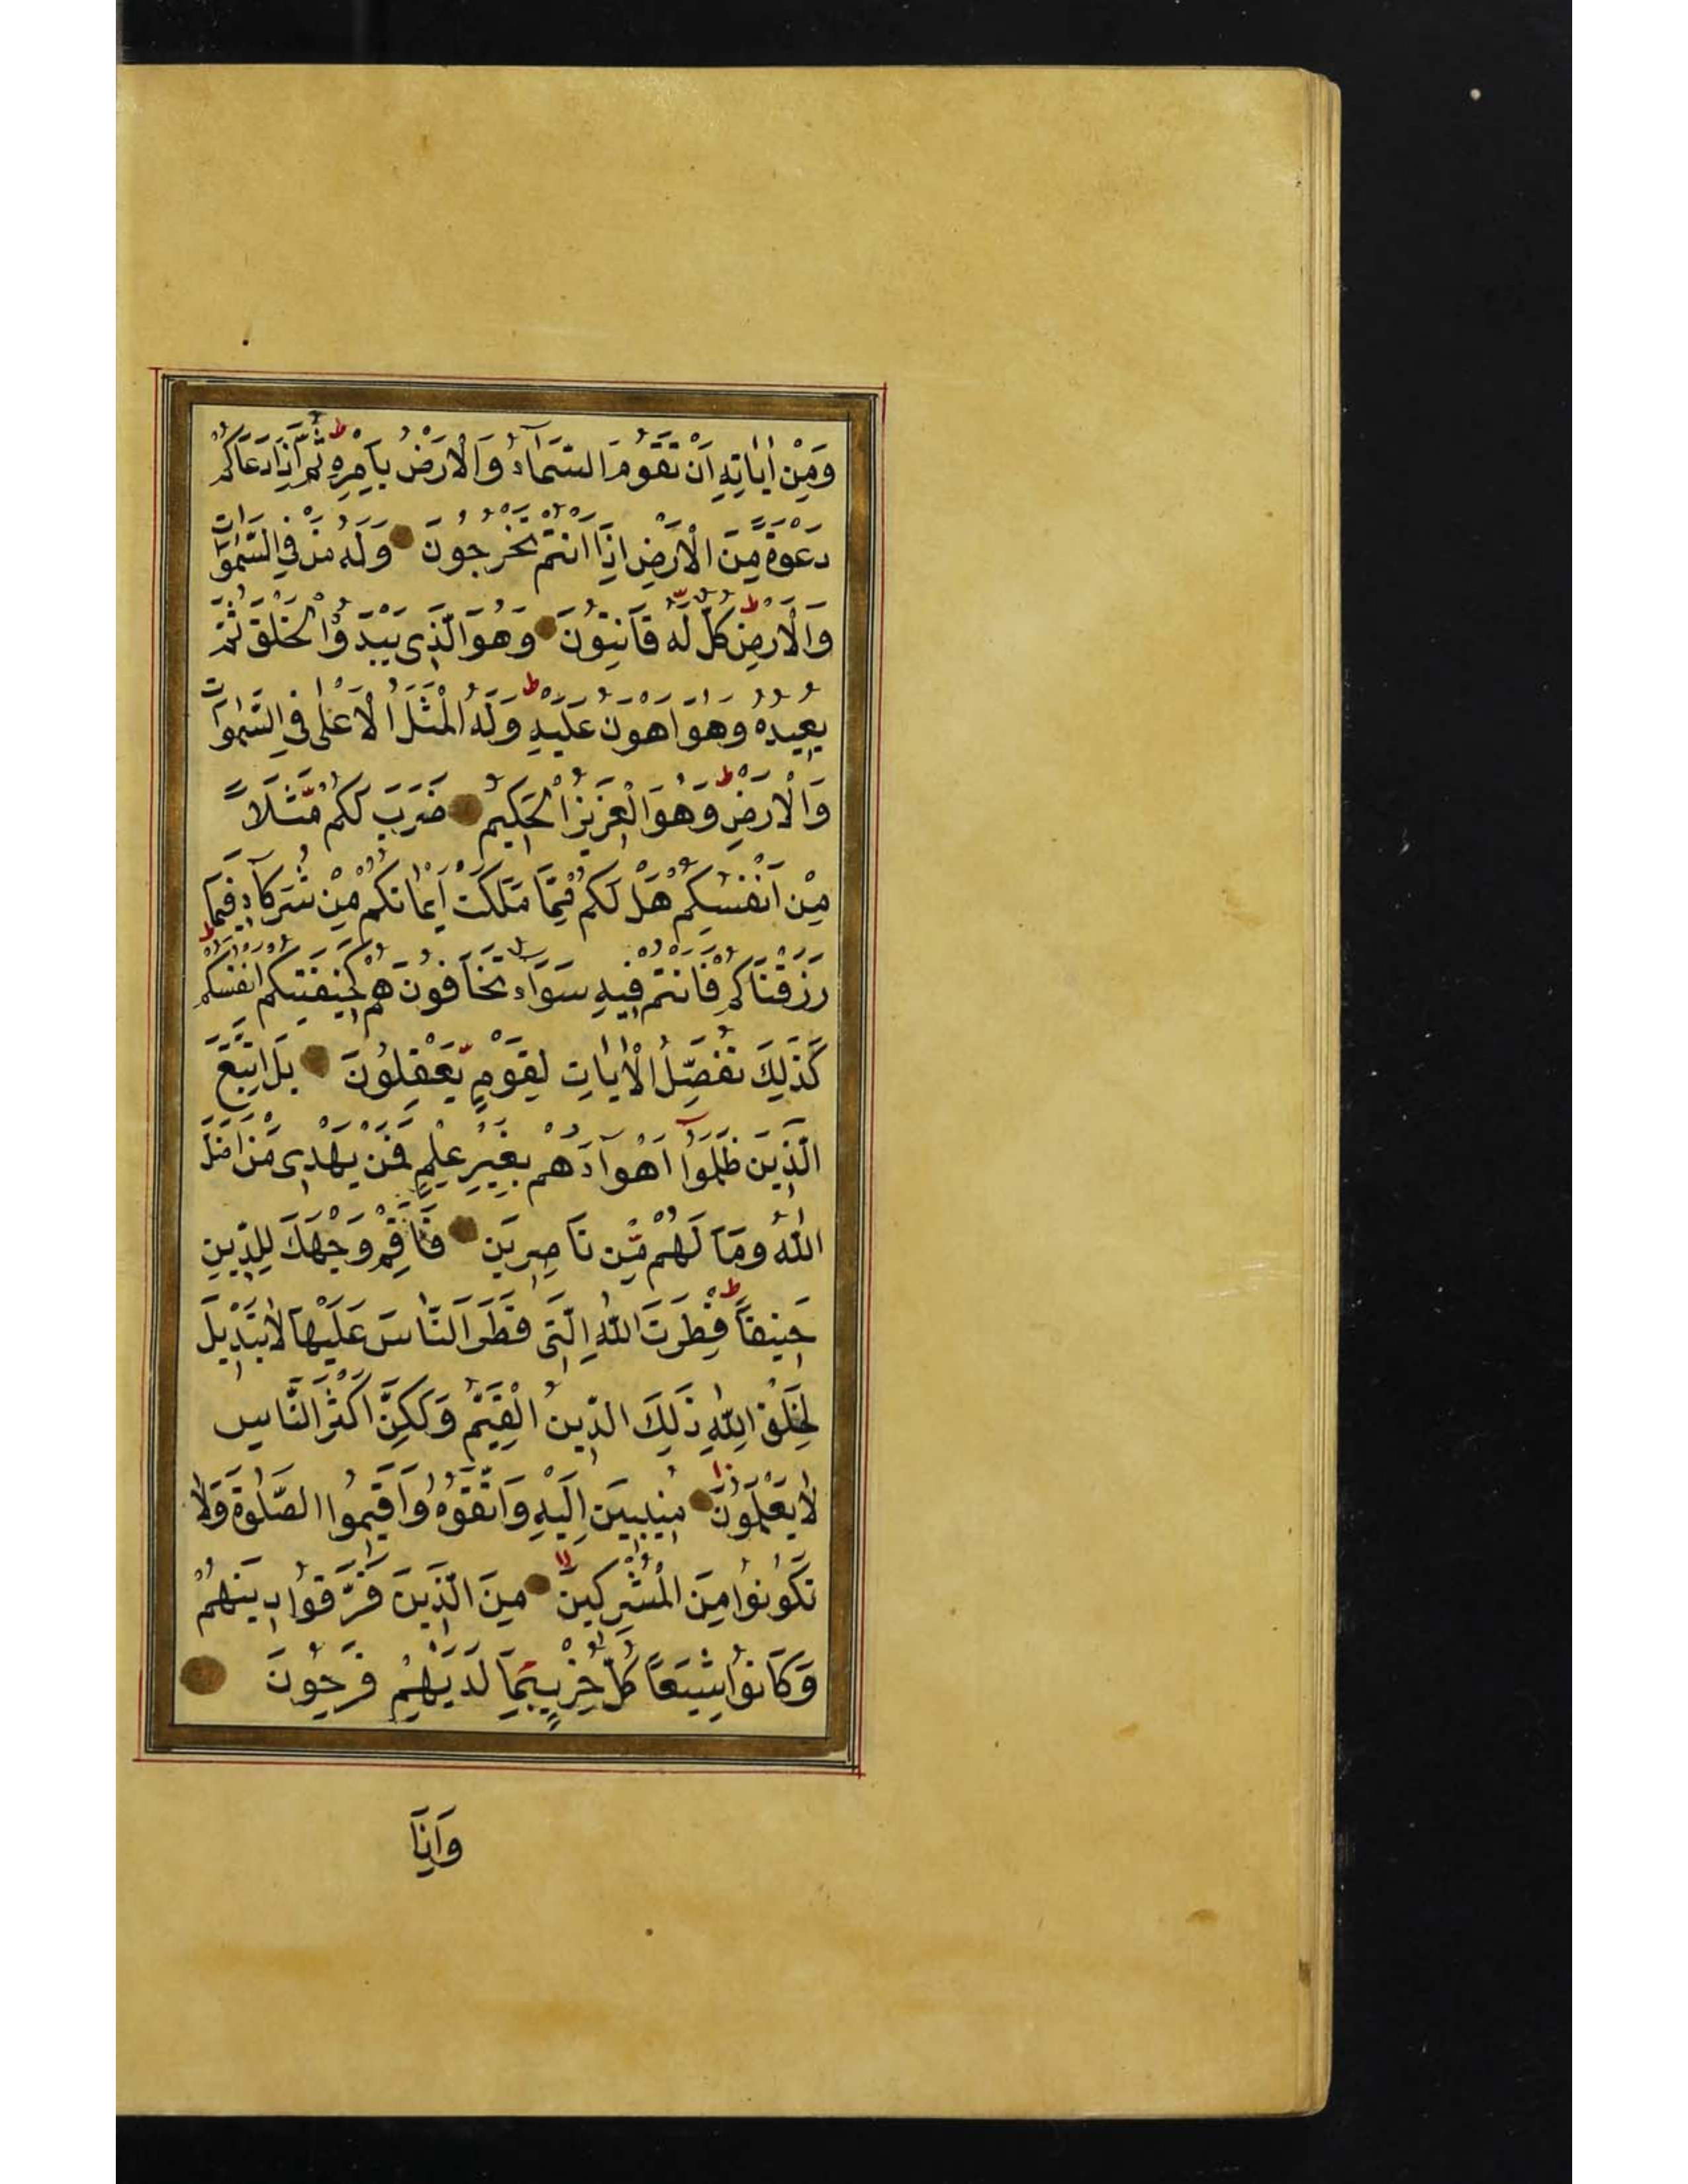 وَمِنْ اٰيَاتِهِ اَنْ تَقُومَ السَّمَآءُ وَالْاَرْضُ بِاَمْرِهِ ط ثُمَّ اِذَا دَعَاكُمْ
دَعْوَةً مِّنَ الْاَرْضِ اِذَا اَنْتُمْ تَخْرُجُونَ وَلَهُ مَنْ فِي السَّمٰوَات
وَالْاَرْضِ ط كُلٌّ لَّهُ قَانِتُونَ وَهُوَ الَّذِى يَبْدَؤُا الْخَلْقَ ثُمَّ
يُعِيدُهُ وَهُوَ اَهْوَنُ عَلَيْهِ ط وَلَهُ الْمَثَلُ الْاَعْلٰى فِي السَّمٰوَات
وَالْاَرْضِ ط وَهُوَ الْعَزِيزُ الْحَكِيمُ ضَرَبَ لَكُمْ مَّثَلًا
مِنْ اَنْفُسِكُمْ هَلْ لَكُمْ مِّمَّا مَلَكَتْ اَيْمَانُكُمْ مِنْ شُرَكَآءَ فِيمَا
رَزَقْنَاكُمْ فَاَنْتُمْ فِيهِ سَوَآءٌ تَخَافُونَهُمْ كَخِيفَتِكُمْ اَنْفُسَكُمْ ط
كَذٰلِكَ نُفَصِّلُ الْاٰيَاتِ لِقَوْمٍ يَّعْقِلُونَ بَلِ اتَّبَعَ
الَّذِينَ ظَلَمُوٓا اَهْوَآءَهُمْ بِغَيْرِ عِلْمٍ فَمَنْ يَهْدِى مَنْ اَضَلَّ
اللّٰهُ وَمَا لَهُمْ مِّنْ نَاصِرِينَ فَاَقِمْ وَجْهَكَ لِلدِّينِ
حَنِيفًا ط فِطْرَتَ اللّٰهِ الَّتِى فَطَرَ النَّاسَ عَلَيْهَا لَا تَبْدِيلَ
لِخَلْقِ اللّٰهِ ذٰلِكَ الدِّينُ الْقَيِّمُ وَلٰكِنَّ اَكْثَرَ النَّاسِ
لَا يَعْلَمُونَ مُنِيبِينَ اِلَيْهِ وَاتَّقُوهُ وَاَقِيمُوا الصَّلٰوةَ وَلَا
تَكُونُوا مِنَ الْمُشْرِكِينَ لا مِنَ الَّذِينَ فَرَّقُوا دِينَهُمْ
وَكَانُوا شِيَعًا كُلُّ حِزْبٍ بِمَا لَدَيْهِمْ فَرِحُونَ